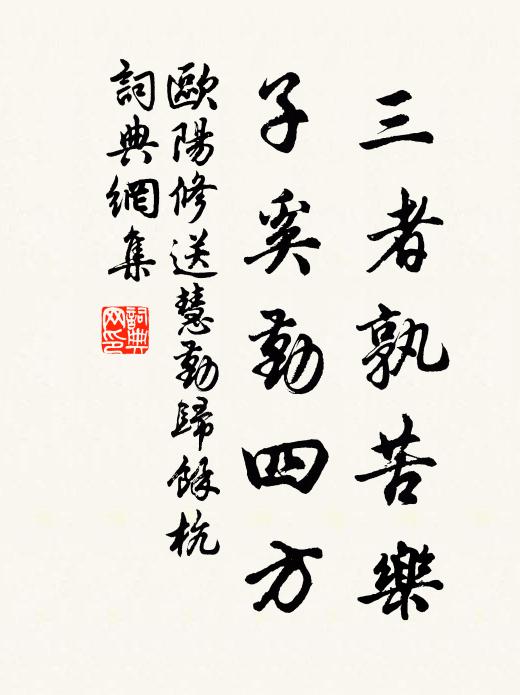 三者孰苦樂
子奚勤四方
歐陽修送慧勤歸餘杭
詞典網集
詞典网印